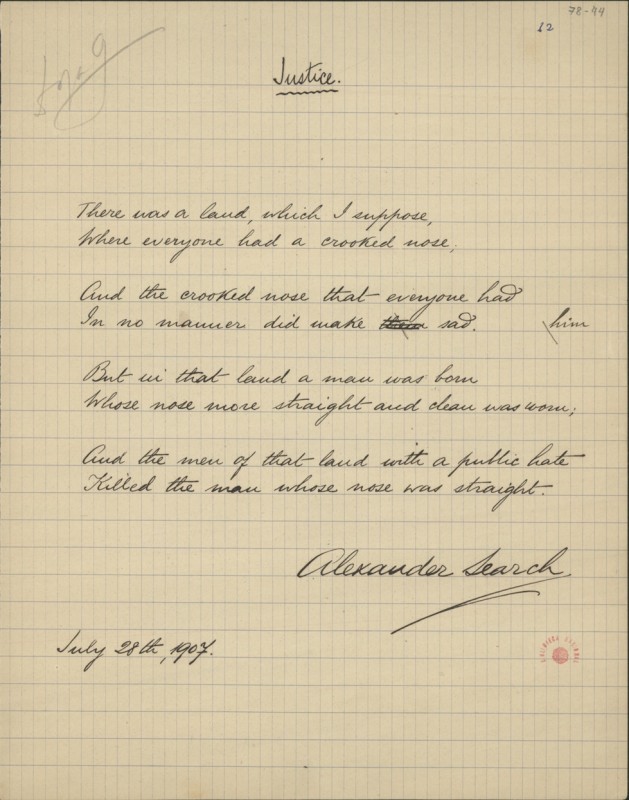 78-44
12
Justice.
There was a land, which I suppose,
Where everyone had a crooked nose;
And the crooked nose that everyone had
In no manner did make them sad. him
But in that land a man was born
Whose nose more straight and clean was worn;
And the men of that land with a public hate
Killed the man whose nose was straight.
Alexander Search
July 28th, 1907.